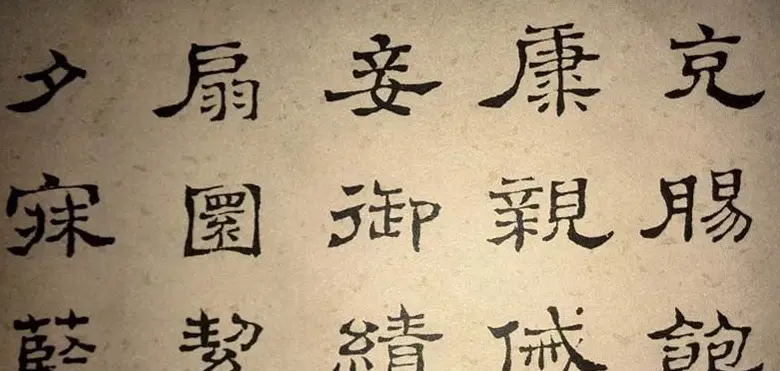 充腸飽
康親傶
妾御績
扇圜絜
夕寐藍